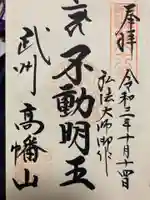 奉拝
令和二年十月十四日
弘法大師御作
不動明王
武州 高幡山